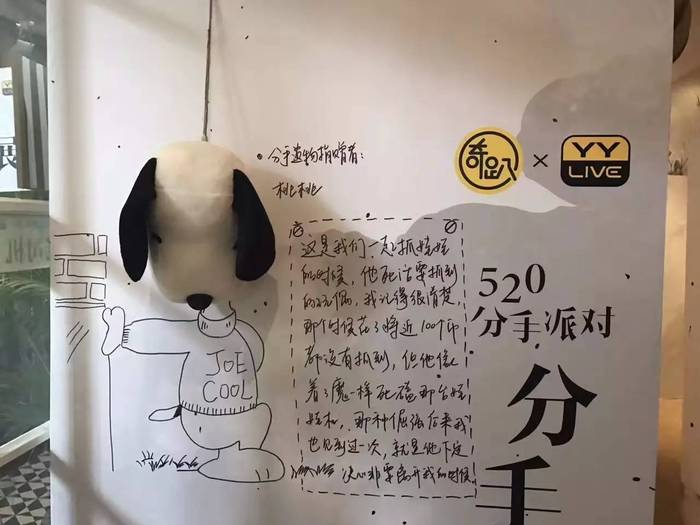 分手遗物捐赠者：
桃桃
奇趴 × YY LIVE
520
分手派对
分手
这是我们一起抓娃娃
的时候，他死活要抓到
的玩偶，我记得很清楚，
那个时候花了将近100个币
都没有抓到，但他像
着了魔一样死磕那台娃
娃机，那种倔强后来我
也见到过一次，就是他下定
决心非要离开我的时候
JOE
COOL